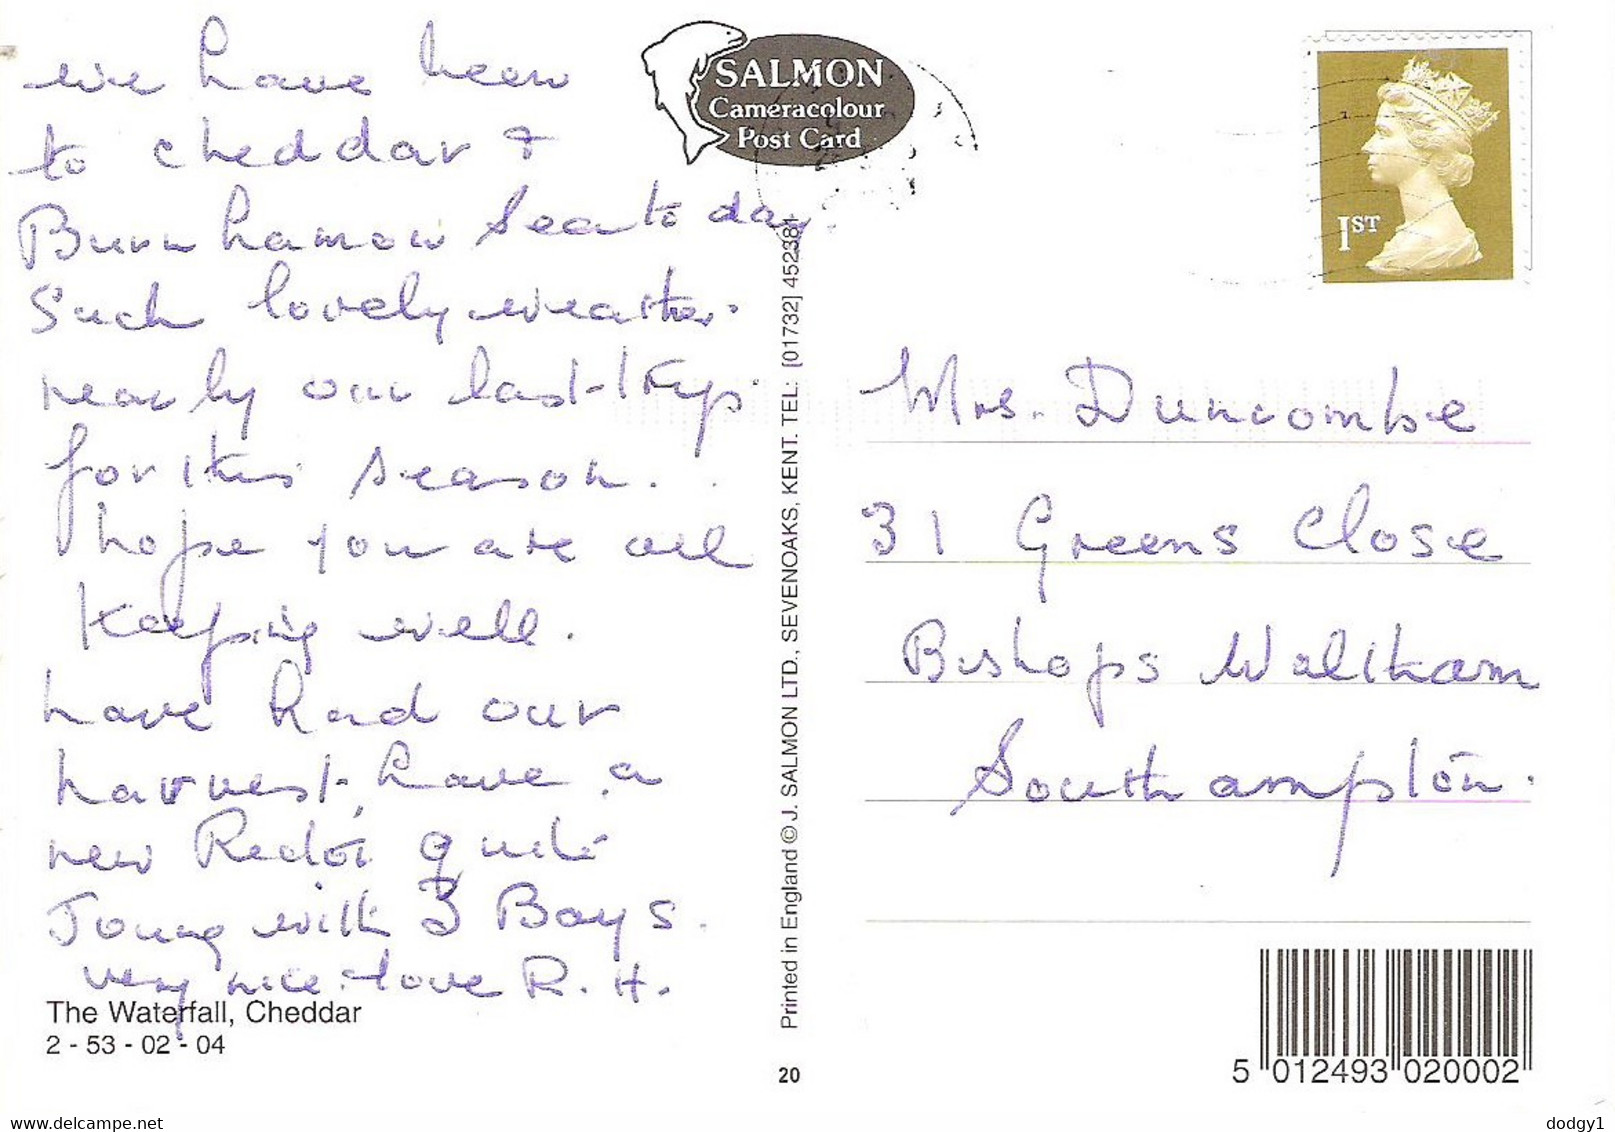 we have been
to cheddar &
Burnhamon Sea to day
Such lovely weather.
nearly our last trip
for this season.
hope you are all
Keeping well.
have had our
harvest, have a
new Rector quite
Young with 3 Boys.
very nice. love R. H.
The Waterfall, Cheddar
2 - 53 - 02 - 04
SALMON
Cameracolour
Post Card
Printed in England © J. SALMON LTD., SEVENOAKS, KENT. TEL: [01732] 452381
20
1ST
Mrs. Duncombe
31 Greens Close
Bishops Waltham
Southampton.
5 012493 020002
www.delcampe.net
dodgy1